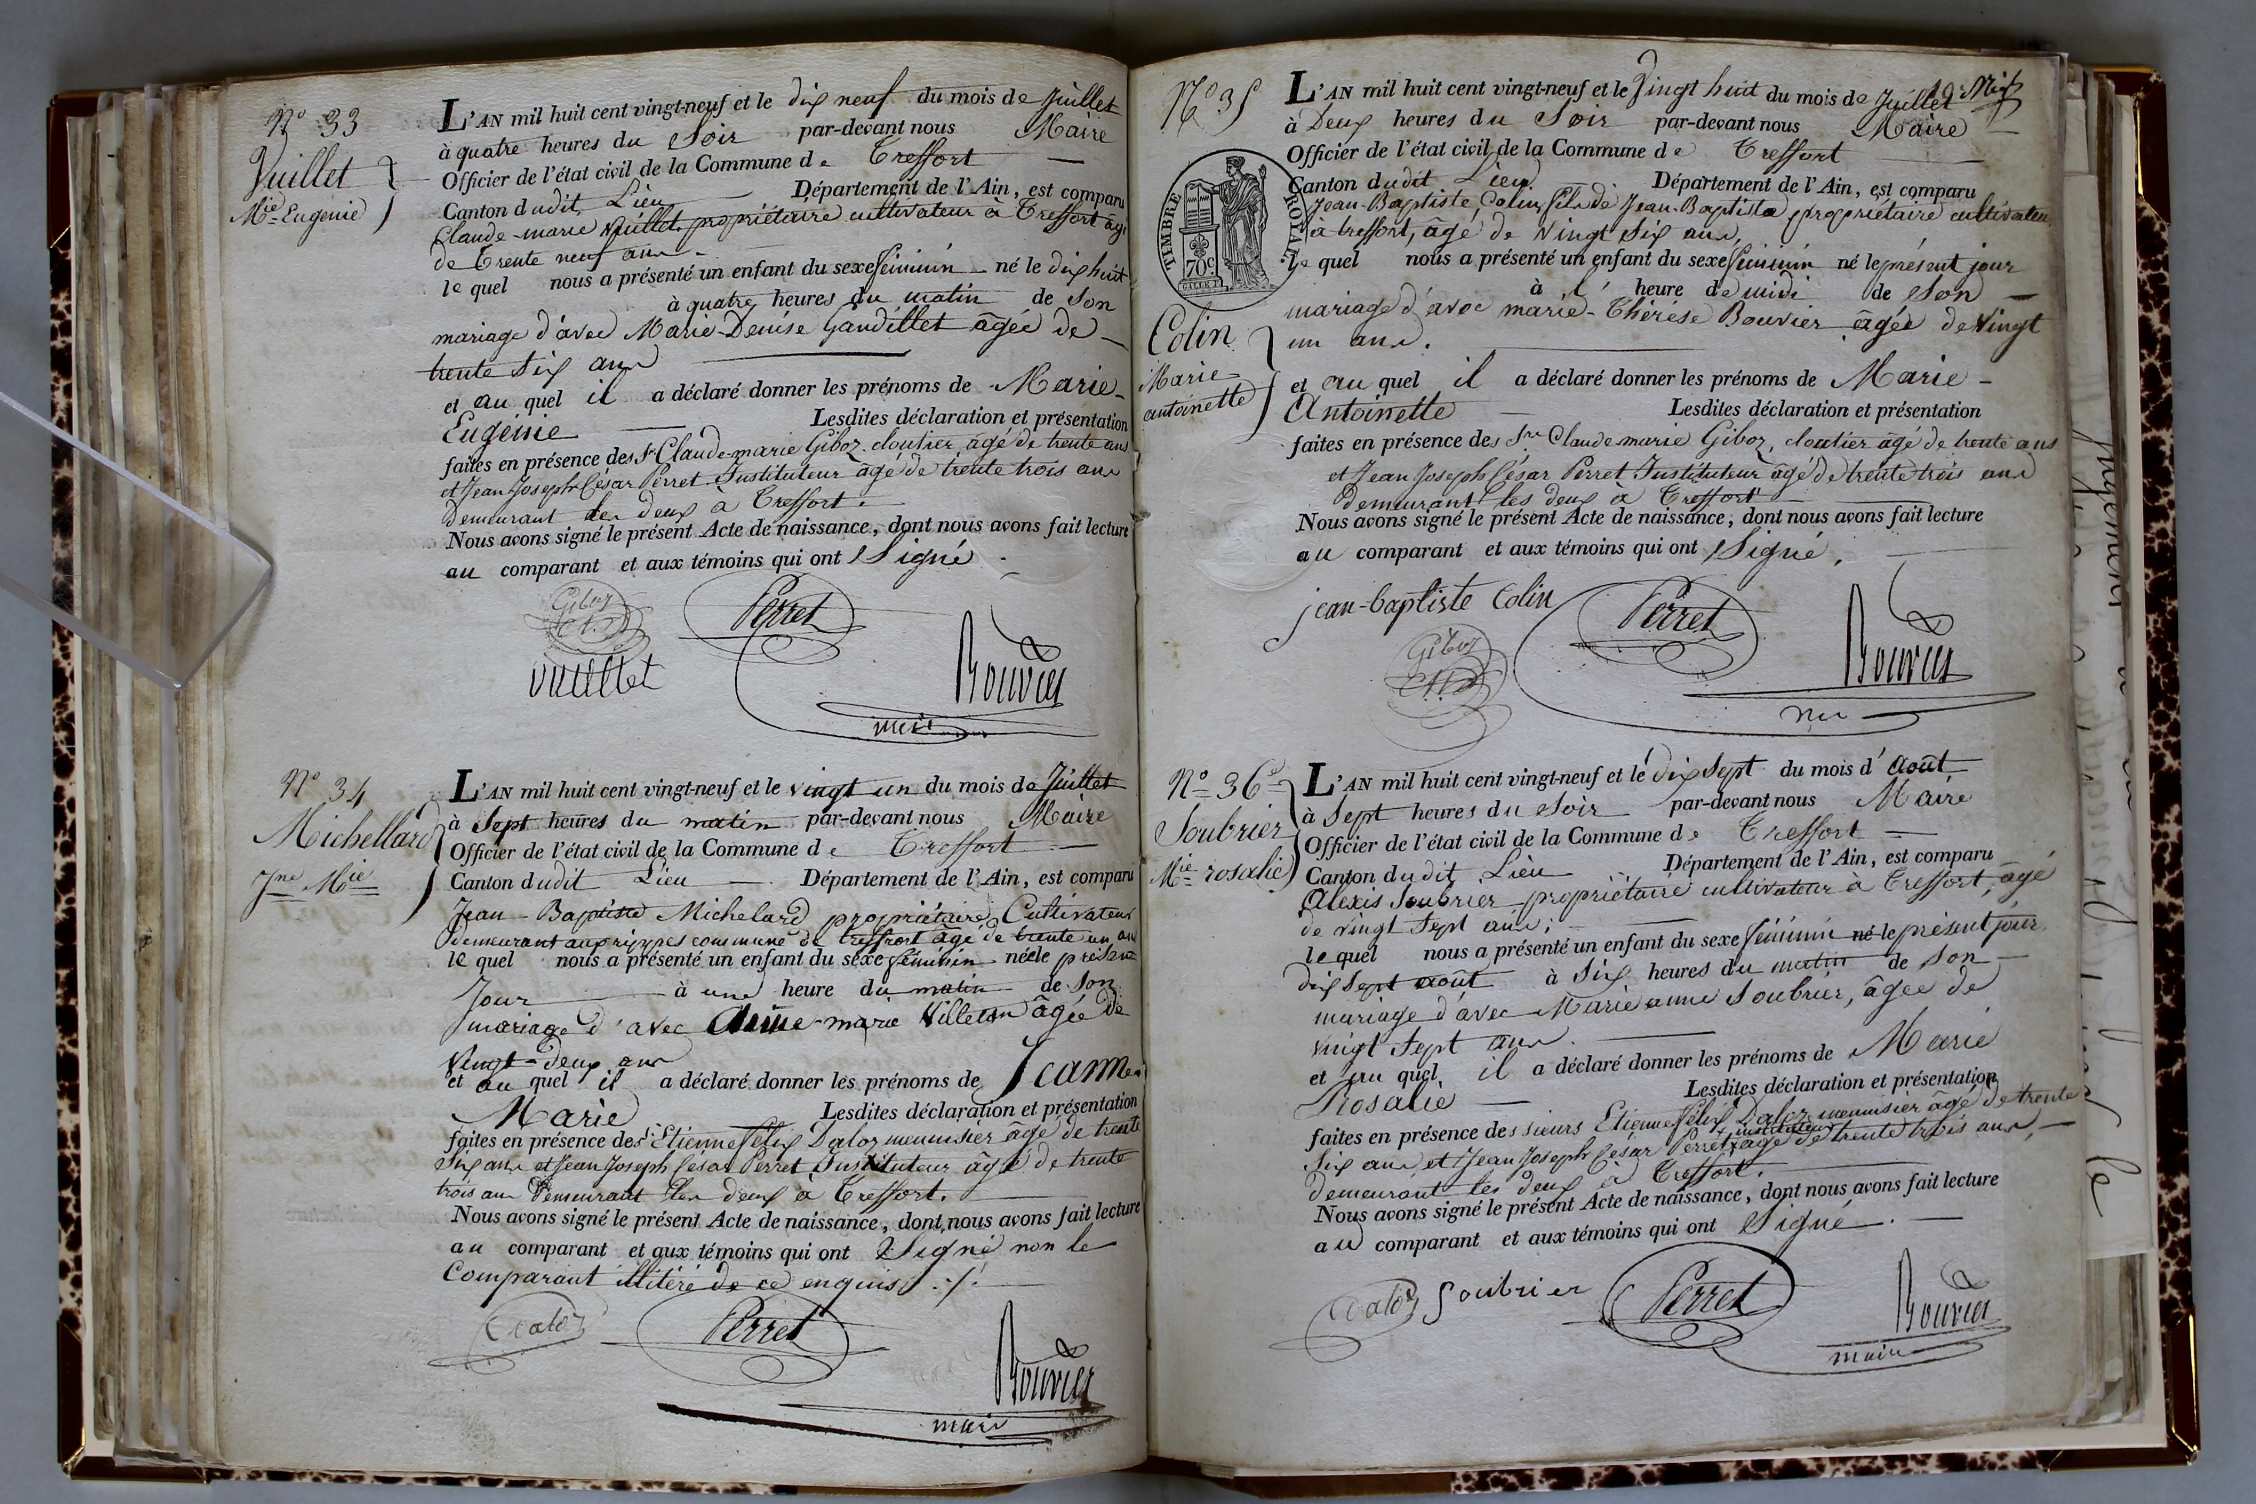 N° 33
Vuillet
Mie Eugénie
L'AN mil huit cent vingt-neuf et le dix neuf du mois de Juillet
à quatre heures du Soir par-devant nous Maire
Officier de l'état civil de la Commune de Treffort
Canton dudit Lieu Département de l'Ain, est comparu
Claude-marie Vuillet propriétaire cultivateur à Treffort âgé
de trente neuf ans
lequel nous a présenté un enfant du sexe féminin né le dix huit
à quatre heures du matin de son
mariage d'avec Marie-Denise Gaudillet âgée de
trente six ans
et au quel il a déclaré donner les prénoms de Marie-
Eugénie Lesdites déclaration et présentation
faites en présence des Sr Claude-marie Giboz cloutier âgé de trente ans
et Jean Joseph César Perret Instituteur âgé de trente trois ans
Demeurant les deux à Treffort.
Nous avons signé le présent Acte de naissance, dont nous avons fait lecture
au comparant et aux témoins qui ont Signé
Giboz Perret
vuillet Bouvier
maire
N° 34
Michellard
Jne Mie
L'AN mil huit cent vingt-neuf et le vingt un du mois de Juillet
à Sept heures du matin par-devant nous Maire
Officier de l'état civil de la Commune de Treffort
Canton dudit Lieu Département de l'Ain, est comparu
Jean-Baptiste Michelard propriétaire Cultivateur
demeurant aux rippes commune de treffort âgé de trente un ans
lequel nous a présenté un enfant du sexe féminin née le présent
Jour à une heure du matin de Son
mariage d'avec Anne-marie Villeton âgée de
Vingt-deux ans
et au quel il a déclaré donner les prénoms de Jeanne
Marie Lesdites déclaration et présentation
faites en présence des Sr Etienne félix Daloz menuisier âgé de trente
Six ans et Jean Joseph César Perret Instituteur âgé de trente
trois ans Demeurant les deux à Treffort.
Nous avons signé le présent Acte de naissance, dont nous avons fait lecture
au comparant et aux témoins qui ont Signé non le
Comparant illitéré de ce enquis
Daloz Perret Bouvier
maire
N° 35
TIMBRE ROYAL
70c
Colin
Marie
antoinette
L'AN mil huit cent vingt-neuf et le Vingt huit du mois de Juillet
à Deux heures du Soir par-devant nous Maire
Officier de l'état civil de la Commune de Treffort
Canton dudit Lieu Département de l'Ain, est comparu
Jean-Baptiste Colin fils de Jean-Baptiste propriétaire cultivateur
à treffort, âgé de vingt six ans,
lequel nous a présenté un enfant du sexe féminin né le présent jour
à l' heure de midi de Son
mariage d'avec marie-Thérèse Bouvier âgée de Vingt
un ans.
et au quel il a déclaré donner les prénoms de Marie-
Antoinette Lesdites déclaration et présentation
faites en présence des Srs Claude marie Giboz, cloutier âgé de trente ans
et Jean Joseph César Perret Instituteur âgé de trente trois ans
demeurant les deux à Treffort
Nous avons signé le présent Acte de naissance, dont nous avons fait lecture
au comparant et aux témoins qui ont Signé.
jean-baptiste Colin Perret
Giboz Bouvier
N° 36
Soubrier
Mie rosalie
L'AN mil huit cent vingt-neuf et le dix Sept du mois d'août
à Sept heures du Soir par-devant nous Maire
Officier de l'état civil de la Commune de Treffort
Canton dudit Lieu Département de l'Ain, est comparu
Alexis Soubrier propriétaire cultivateur à Treffort, âgé
de vingt Sept ans;
lequel nous a présenté un enfant du sexe féminin né le présent jour
dix Sept août à Six heures du matin de Son
mariage d'avec Marie anne Soubrier, âgée de
vingt Sept ans.
et au quel il a déclaré donner les prénoms de Marie
Rosalie Lesdites déclaration et présentation
faites en présence des sieurs Etienne félix Daloz menuisier âgé de trente
Six ans et Jean Joseph César Perret instituteur âgé de trente trois ans
demeurant les deux à Treffort.
Nous avons signé le présent Acte de naissance, dont nous avons fait lecture
au comparant et aux témoins qui ont Signé.
Daloz Soubrier Perret Bouvier
maire